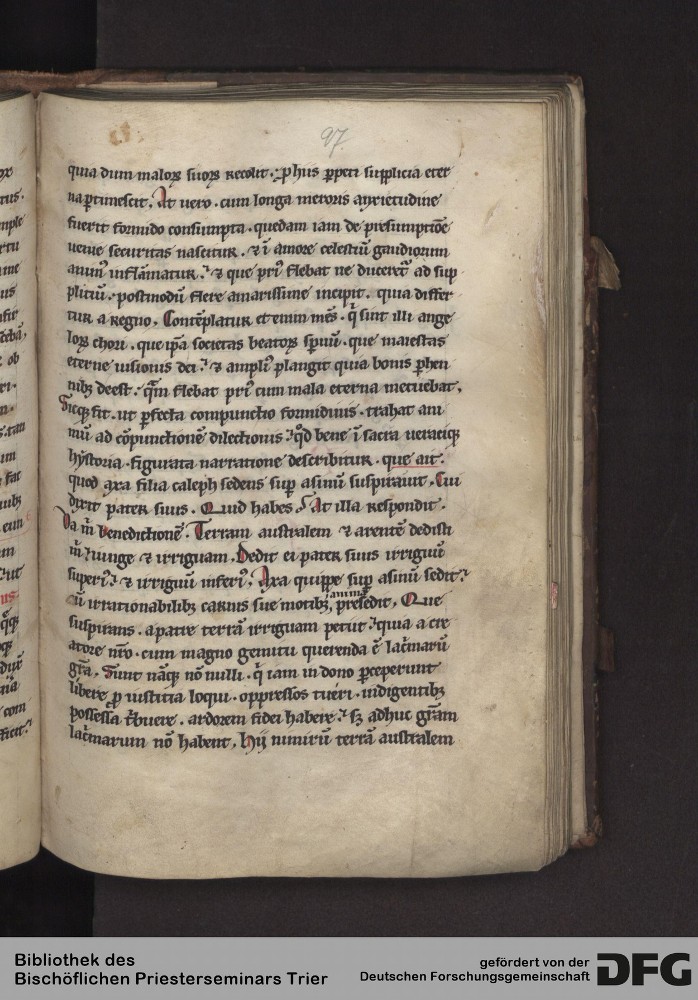 97
quia dum maloꝝ suoꝝ recolit. ꝓ hiis ꝑpeti supplicia eter
na ꝑtimescit. At uero. cum longa meroris anxietudine
fuerit formido consumpta. quedam iam de presumptiōe
uenie securitas nascitur. ⁊ ī amore celestiū gaudiorum
anim᷒ inflāmatur. ⁊ que pri᷒ flebat ne duceretᷣ ad sup
pliciū. postmodū flere amarissime incipit. quia differ
tur a regno. Contēplatur etenim mēs. q̄ sint illi ange
loꝝ chori. que ip̄a societas beatoꝝ spūū. que maiestas
eterne uisionis dei. ⁊ ampli᷒ plangit quia bonis ꝑhen
nibꝫ deest. q̄m flebat pri᷒ cum mala eterna metuebat.
Sicqꝫ fit. ut ꝑfecta compunctio formidinis. trahat ani
mū ad cōpunctionē dilectionis. qd̄ bene ī sacra ueraciqꝫ
hystoria. figurata narratione describitur. que ait.
quod axa filia caleph sedens suꝑ asinū suspirauit. Cui
dixit pater suus. Quid habes. At illa respondit.
Da m̄ benedictionē. Terram australem ⁊ arentē dedisti
m̄. iunge ⁊ irriguam. Dedit ei pater suus irriguū
superi᷒. ⁊ irriguū inferi᷒. Axa quippe suꝑ asinū sedit.
cū irrationabilibꝫ carnis sue motibꝫ anima presedit. Que
suspirans. a patre terrā irriguam petit. quia a cre
atore nr̄o. cum magno gemitu querenda ē lacͥmarū
gr̄a. Sunt nāqꝫ nō nulli. q̄ iam in dono ꝑceperunt
libere ꝓ iusticia loqui. oppressos tueri. indigentibꝫ
possessa tͥbuere. ardorem fidei habere. sꝫ adhuc gr̄am
lacͥmarum nō habent. hij nimirū terrā australem
Bibliothek des
Bischöflichen Priesterseminars Trier
gefördert von der
Deutschen Forschungsgemeinschaft
DFG